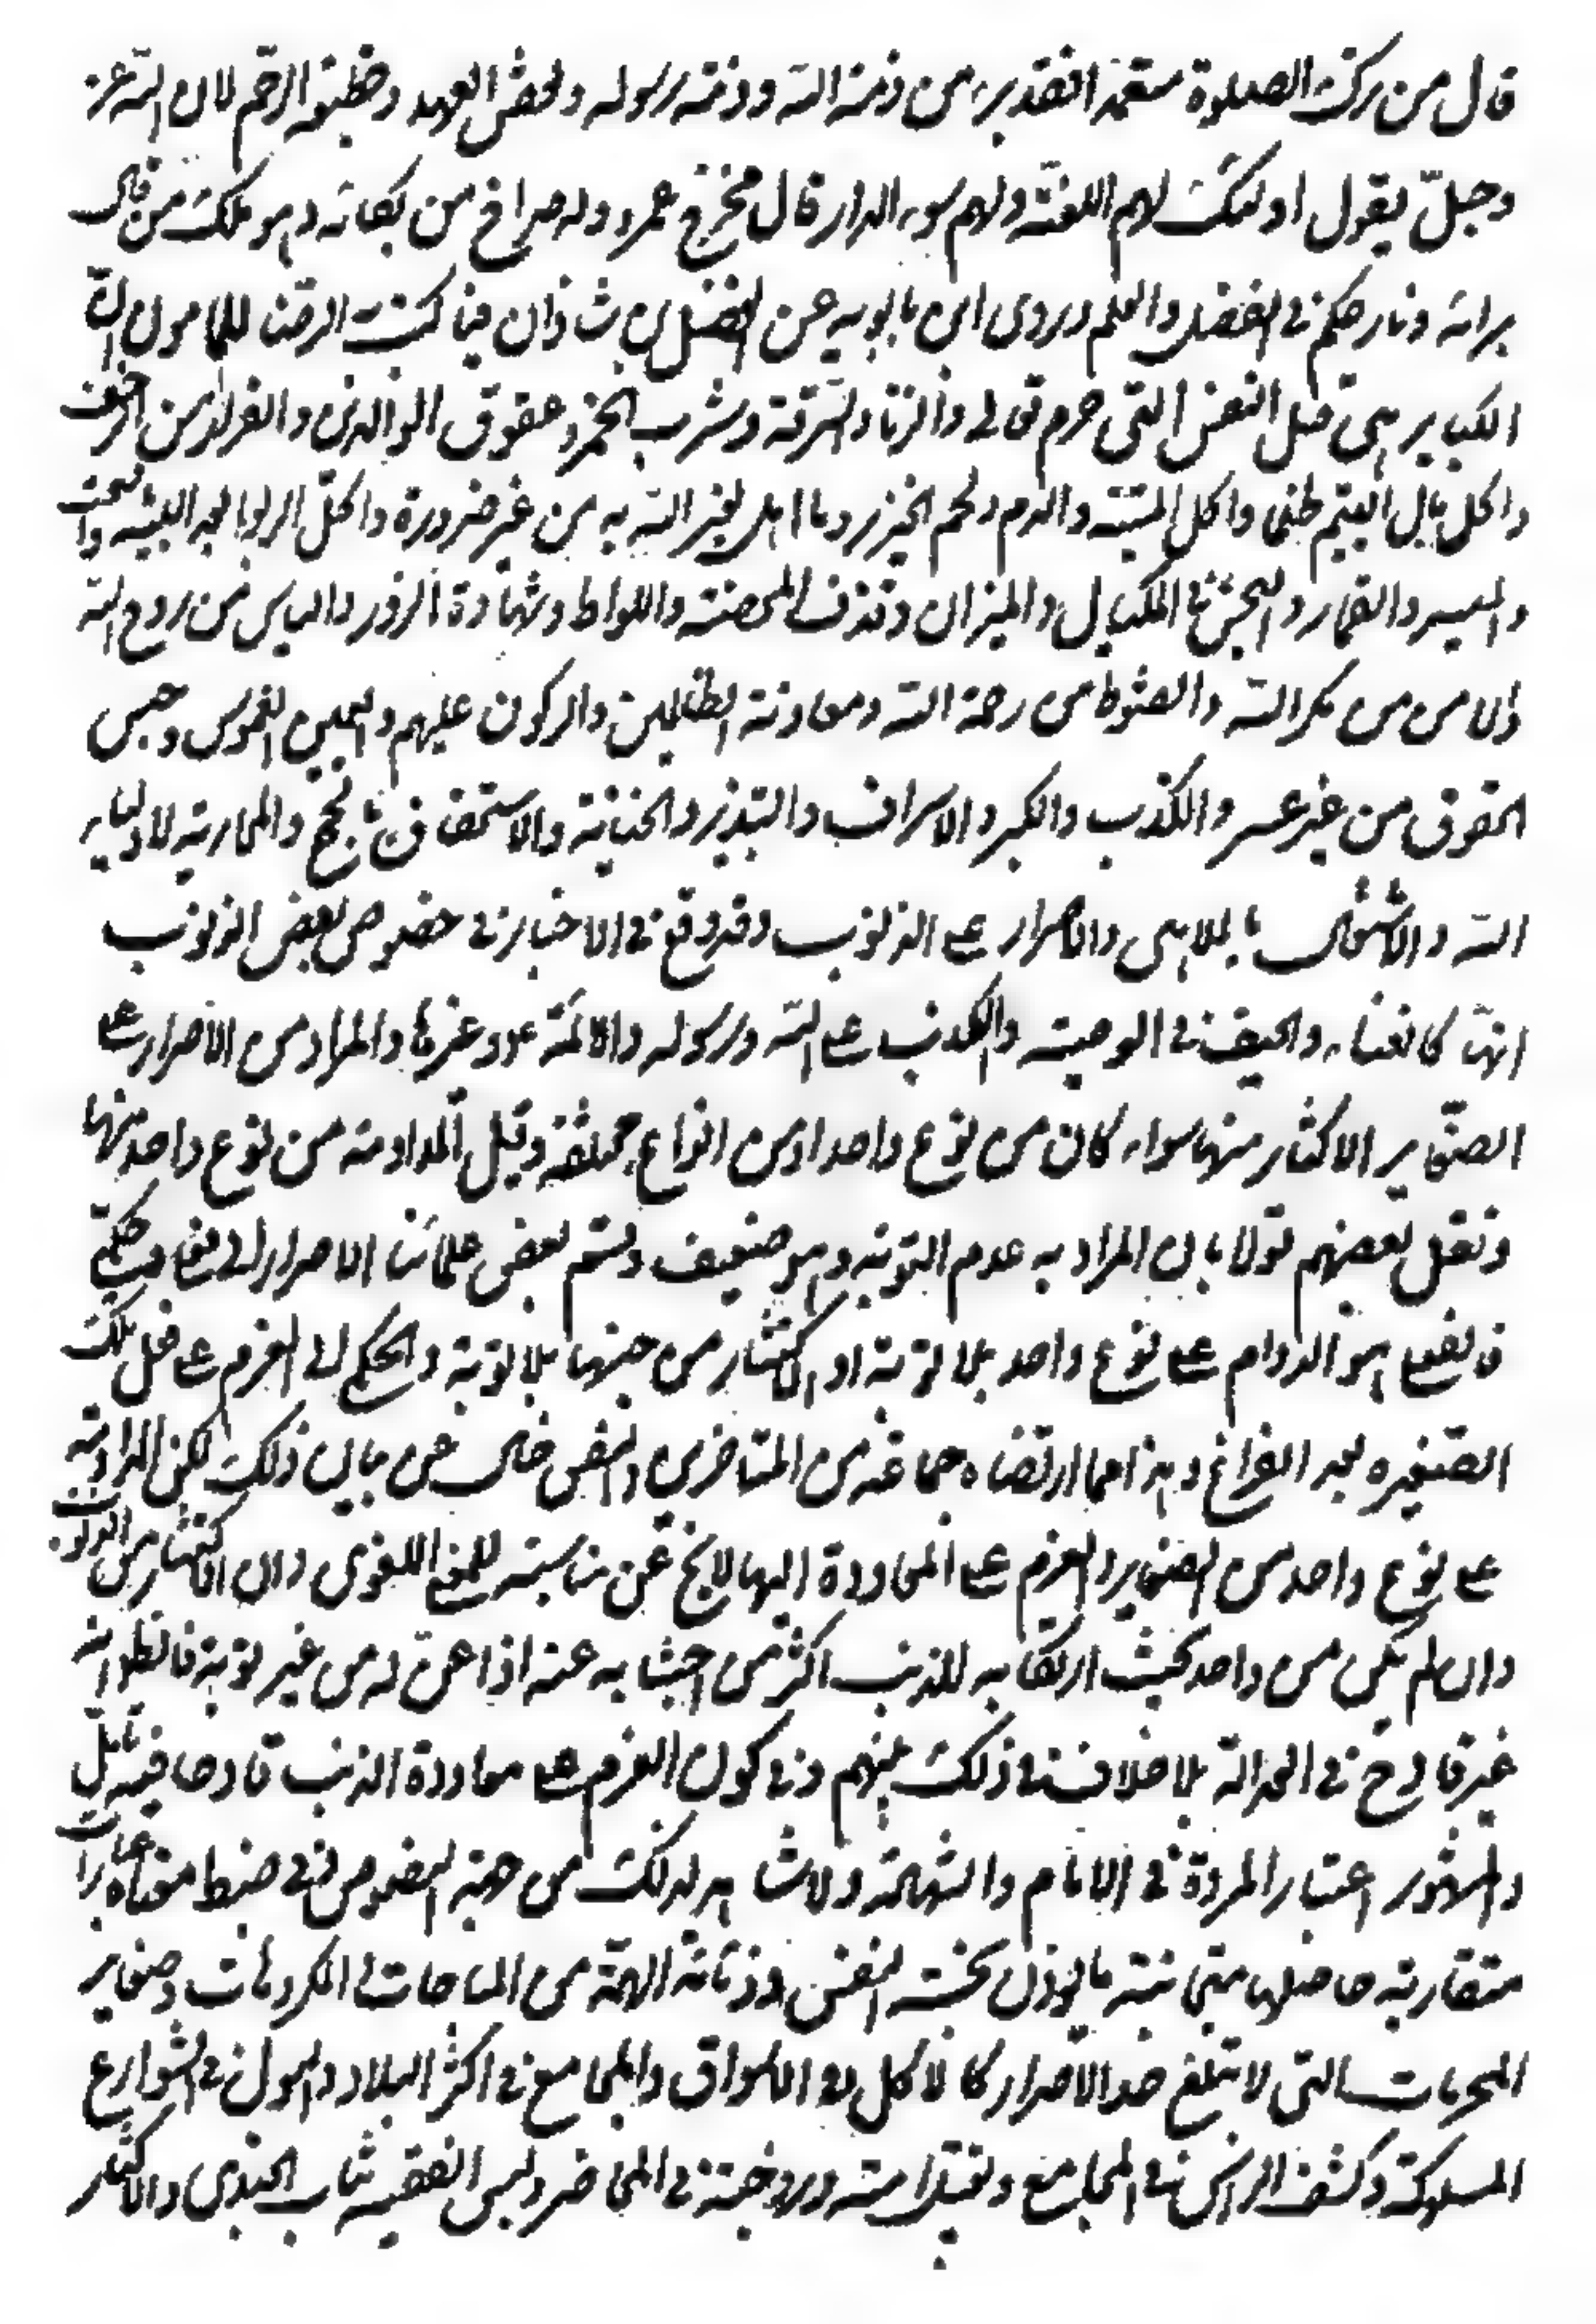 قال من ترك الصلوة متعمدا فقد برء من ذمة الله وذمة رسوله ونقض العهد وقطيعة الرحم لان الله عز
وجلّ يقول اولئك لهم اللعنة ولهم سوء الدار قال فخرج عمرو وله صراخ من بكائه وهو هلك من قال
برايه ونازعكم في الفضل والعلم وروى ابن بابويه عن الفضل بن شاذان فيما كتب به الرضا للمامون انّ
الكباير هي قتل النفس التي حرم الله تعالى والزنا والسّرقة وشرب الخمر وعقوق الوالدين والفرار من الزحف
واكل مال اليتيم ظلما واكل الميتة والدم ولحم الخنزير وما اهل لغير الله به من غير ضرورة واكل الربوا بعد البينة والسحت
والميسر والقمار والبخس في المكيال والميزان وقذف المحصنة واللواط وشهادة الزور والياس من روح الله
والامن من مكر الله والقنوط من رحمة الله ومعاونة الظالمين والركون عليهم واليمين الغموس وحبس
الحقوق من غير عسر والكذب والكبر والاسراف والتبذير والخيانة والاستخفاف بالحج والمحاربة لاولياء
الله والاشتغال بالملاهى والاصرار على الذنوب وقد وقع في الاخبار في خصوص بعض الذنوب
انها كالغناء والحيف في الوصية والكذب على الله ورسوله والائمة ع وغيرها والمراد من الاصرار على
الصّغاير الاكثار منها سواء كان من نوع واحد او من انواع مختلفة وقيل المداومة من نوع واحد منها
ونقل بعضهم قولا بان المراد به عدم التوبة وهو ضعيف وقسم بعض علمائنا الاصرار الى فعلي وحكمي
فالفعلي هو الدوام على نوع واحد بلا توبة او الاكثار من جنسها بلا توبة والحكمي له العزم على فعل تلك
الصّغيرة بعد الفراغ وهذا مما ارتضاه جماعة من المتاخرين والنص خال عن بيان ذلك لكن المداومة
على نوع واحد من الصغاير والعزم على المعاودة اليها لا يخ عن مناسبته للمعنى اللغوى وان الاكثار من الذنوب
وان لم يكن من واحد بحيث ارتكابه للذنب اكثر من اجتنابه عنه اذا عنّ له من غير توبة فالظاهر انه
غير قادح في العدالة بلا خلاف في ذلك بينهم وفي كون العزم على معاودة الذنب قادحا فيه تامّل
والمشهور اعتبار المروة في الامام والشهادة ولا شاهد لذلك من جهة النصوص ففي ضبط معناه عبارات
متقاربة حاصلها مجانبة ما يؤذن بخسة النفس ودنائة الهمّة من المباحات والمكروهات وصغاير
المحرمات التي لا تبلغ حد الاصرار كالاكل في الاسواق والمجامع في اكثر البلاد والبول في الشوارع
المسلوكة وكشف الراس في المجامع وتقبيل امته وزوجته في المحاضر ولبس الفقيه ثياب الجندى والاكثار